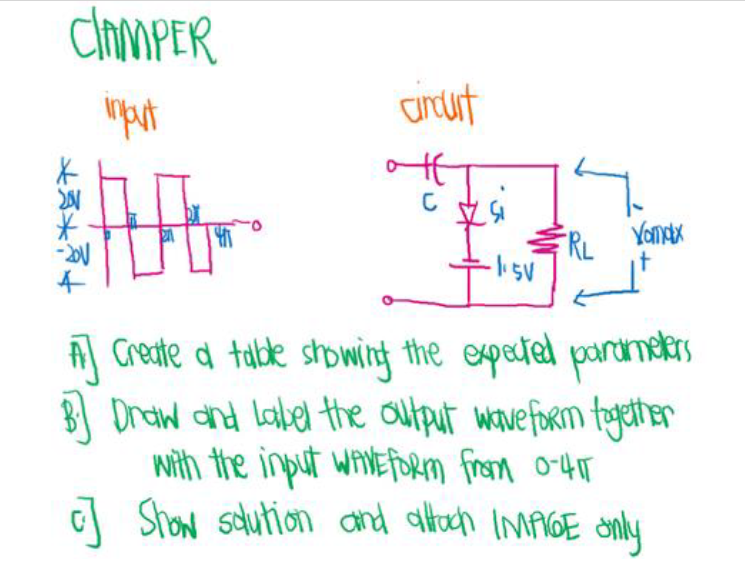 CLAMPER
input
circuit
20V
-20V
π
2π
4π
C
Si
1.5V
RL
-
Vomax
+
A] Create a table showing the expected parameters
B.] Draw and Label the output waveform together
with the input WAVEFORM from 0-4π
C.] Show solution and attach IMAGE only